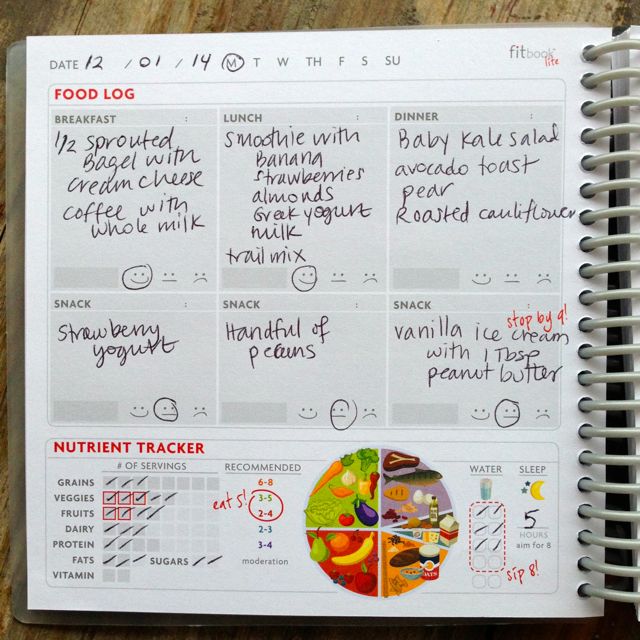 DATE 12 / 01 / 14 M T W TH F S SU
fitbook lite
FOOD LOG
BREAKFAST :
1/2 sprouted
Bagel with
cream cheese
coffee with
whole milk
LUNCH :
Smoothie with
Banana
strawberries
almonds
Greek yogurt
milk
trail mix
DINNER :
Baby Kale salad
avocado toast
pear
Roasted cauliflower
SNACK :
Strawberry
yogurt
SNACK :
Handful of
pecans
SNACK
stop by 9!
vanilla ice cream
with 1 Tbsp
peanut butter
NUTRIENT TRACKER
# OF SERVINGS RECOMMENDED
GRAINS 6-8
VEGGIES 3-5
eat 5!
FRUITS 2-4
DAIRY 2-3
PROTEIN 3-4
FATS SUGARS moderation
VITAMIN
OATS
WATER
sip 8!
SLEEP
5
HOURS
aim for 8